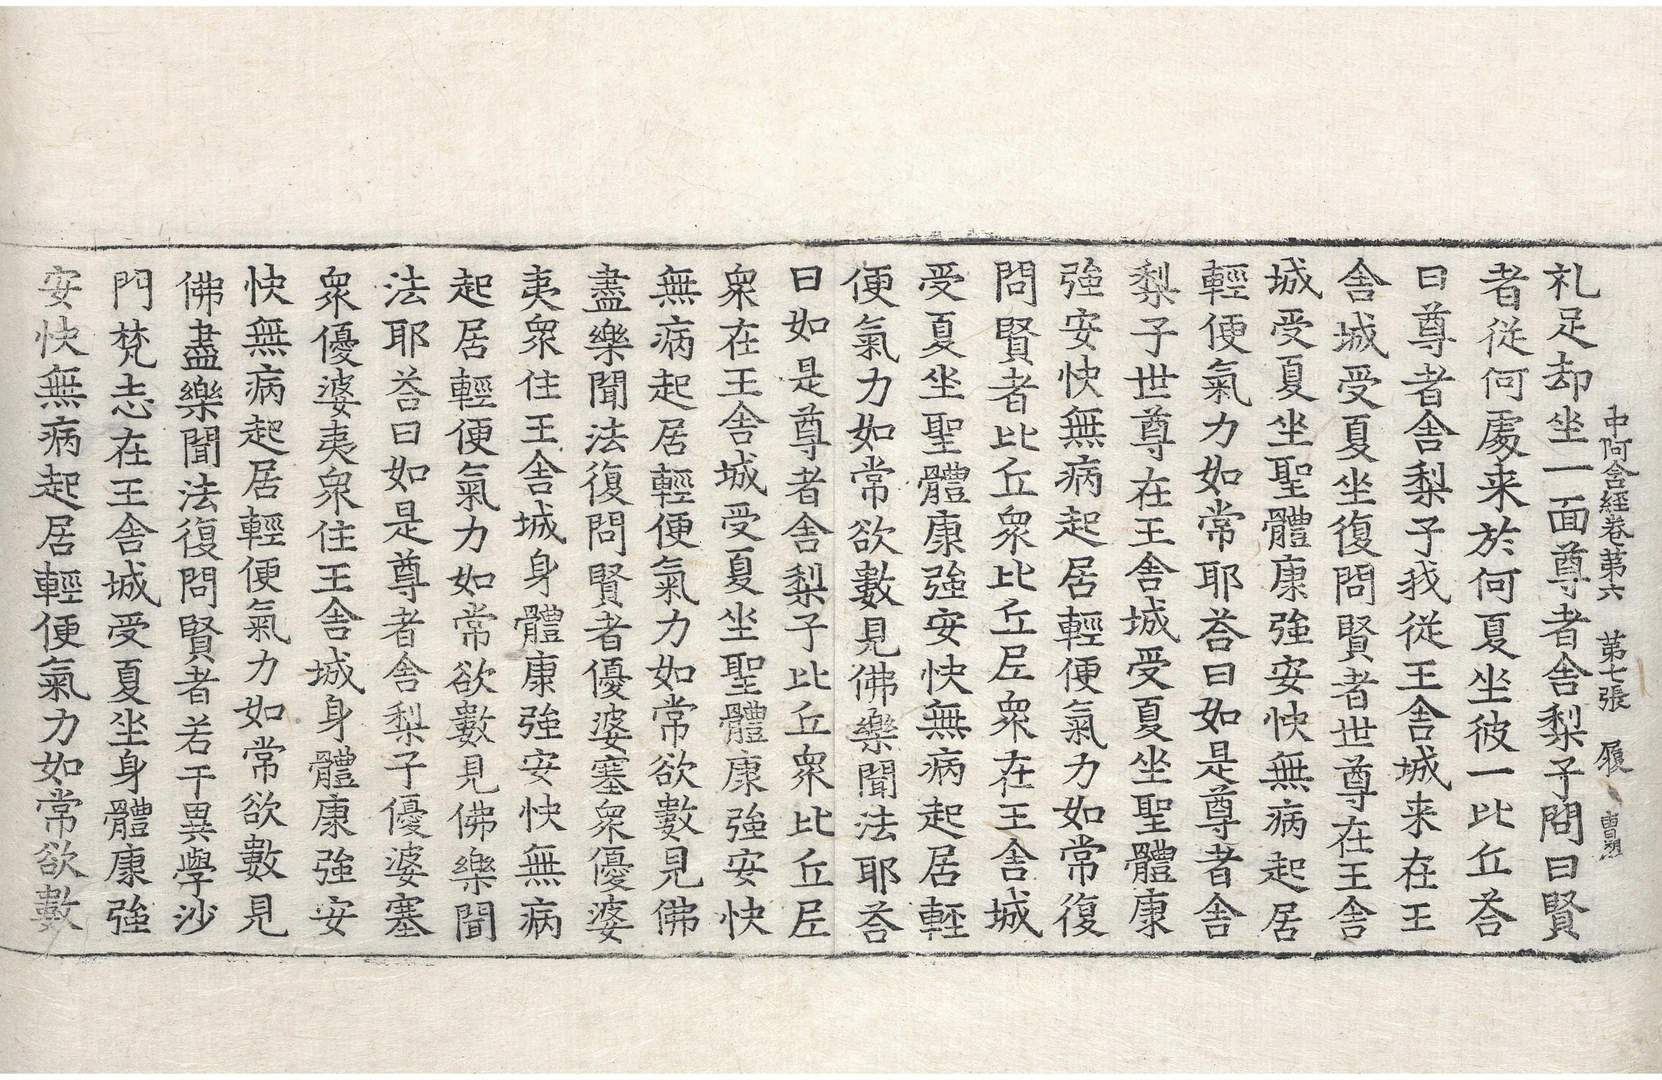 中阿含經卷第六　第七張　履
礼足却坐一面尊者舍梨子問曰賢
者從何處来於何夏坐彼一比丘荅
曰尊者舍梨子我從王舍城来在王
舍城受夏坐復問賢者世尊在王舍
城受夏坐聖體康強安快無病起居
輕便氣力如常耶荅曰如是尊者舍
梨子世尊在王舍城受夏坐聖體康
強安快無病起居輕便氣力如常復
問賢者比丘衆比丘尼衆在王舍城
受夏坐聖體康強安快無病起居輕
便氣力如常欲數見佛樂聞法耶荅
曰如是尊者舍梨子比丘衆比丘尼
衆在王舍城受夏坐聖體康強安快
無病起居輕便氣力如常欲數見佛
盡樂聞法復問賢者優婆塞衆優婆
夷衆住王舍城身體康強安快無病
起居輕便氣力如常欲數見佛樂聞
法耶荅曰如是尊者舍梨子優婆塞
衆優婆夷衆住王舍城身體康強安
快無病起居輕便氣力如常欲數見
佛盡樂聞法復問賢者若干異學沙
門梵志在王舍城受夏坐身體康強
安快無病起居輕便氣力如常欲數